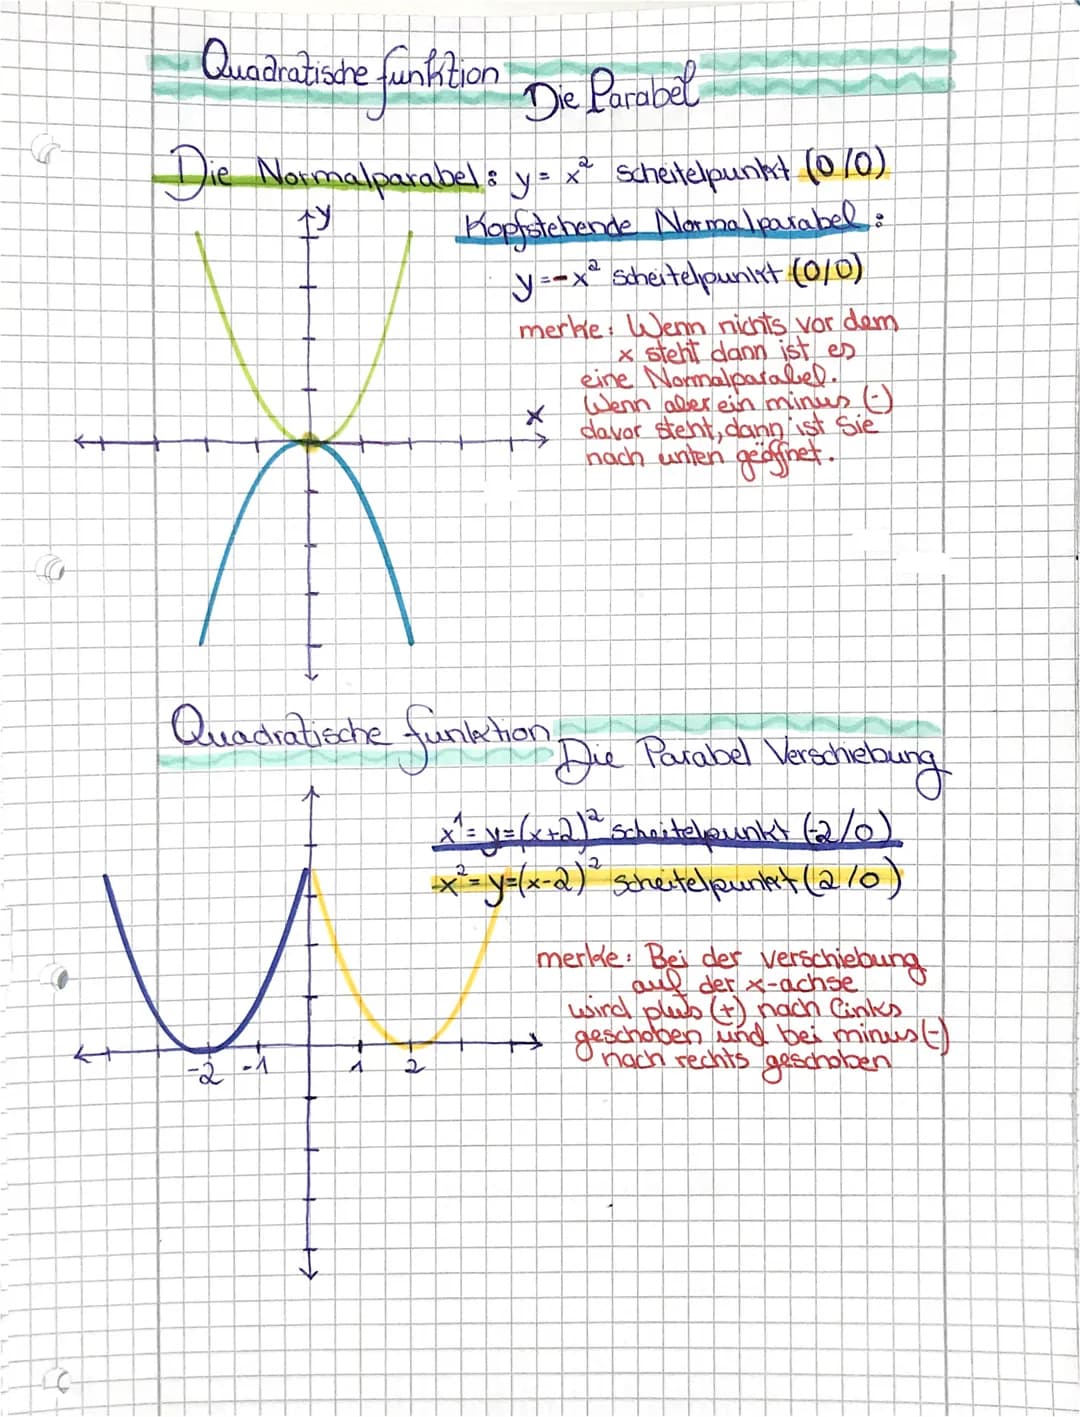 Quadratische funktion
Die Parabel
Die Normalparabel: y = x² Scheitelpunkt (0/0)
y
Kopfstehende Normalparabel:
y=-x² Scheitelpunkt (0/0)
merke: Wenn nichts vor dem
x steht dann ist es
eine Normalparabel.
Wenn aber ein minus (-)
x
davor steht, dann ist Sie
nach unten geöffnet.
Quadratische funktion
Die Parabel Verschiebung
x¹= y=(x+2)² Scheitelpunkt (-2/0)
x²= y=(x-2)² Scheitelpunkt (2/0)
merke: Bei der verschiebung
auf der x-achse
wird plus (+) nach links
geschoben und bei minus (-)
nach rechts geschoben
-2 -1 1 2